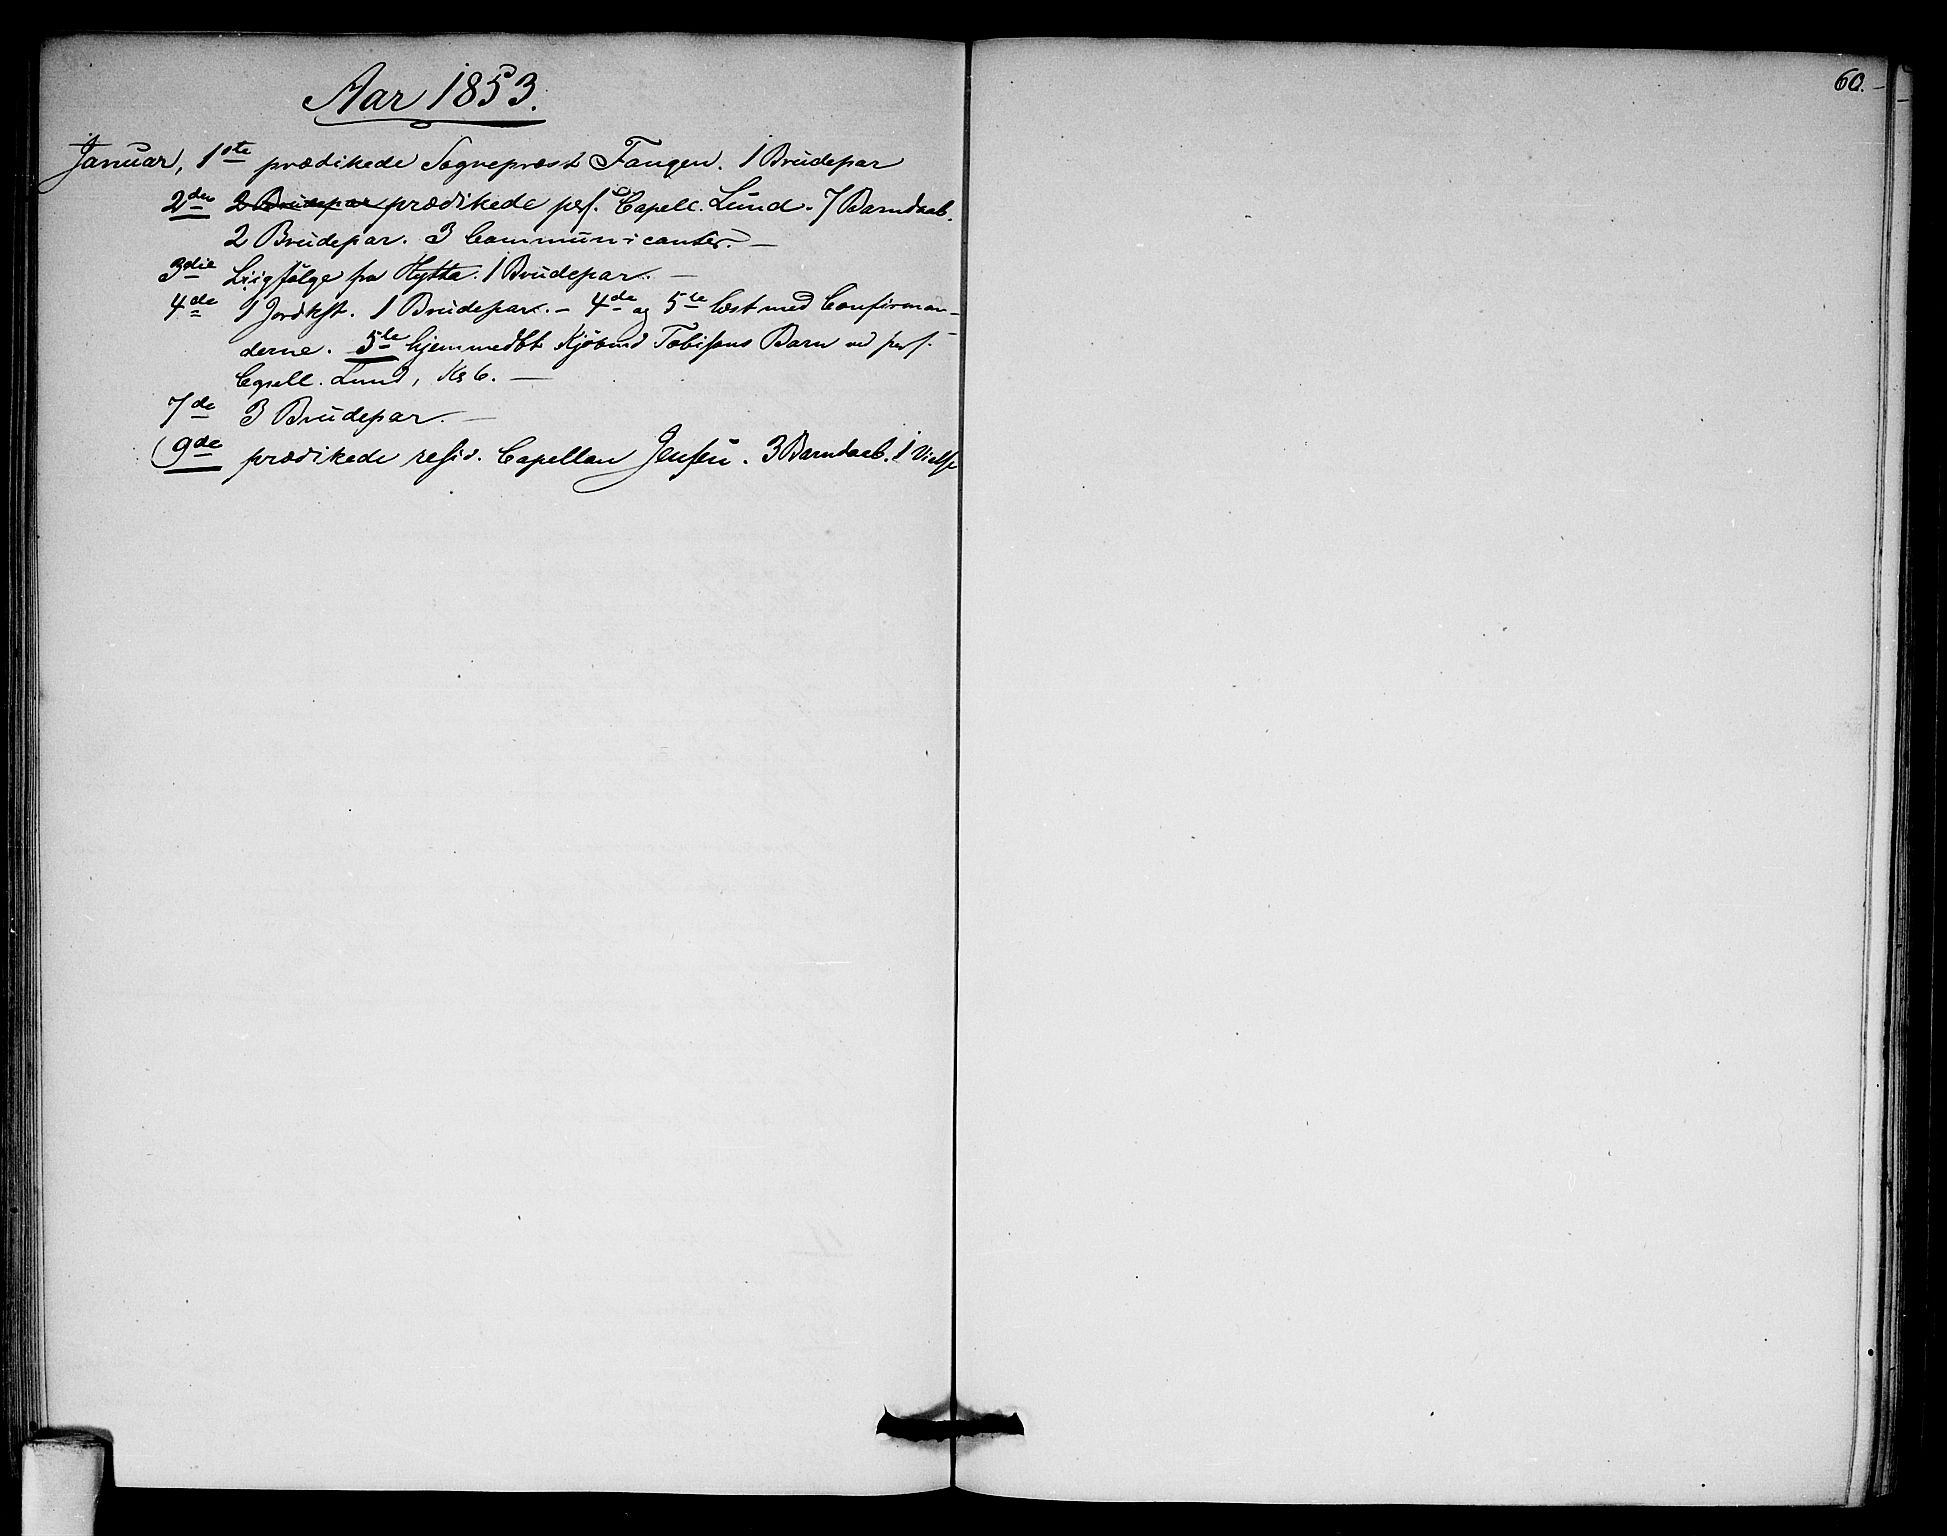 60.
Aar 1853.
Januar, 1ste prædikede Sognepræst Fangen. 1 Brudepar
2den 2 Brudepar prædikede pers. Capell. Lund. 7 Barndaab.
2 Brudepar. 3 Communicanter. —
3die Liigfølge fra Hytta. 1 Brudepar. —
4de 1 Jordkst. 1 Brudepar. — 4de og 5te læst med Confirman-
derne. 5te hjemmedbt Kjøbmd Tobisens Barn ved pers.
Capell. Lund, Kl 6. —
7de 3 Brudepar. —
9de prædikede resid. Capellan Jensen. 3 Barndaab. 1 Vielse